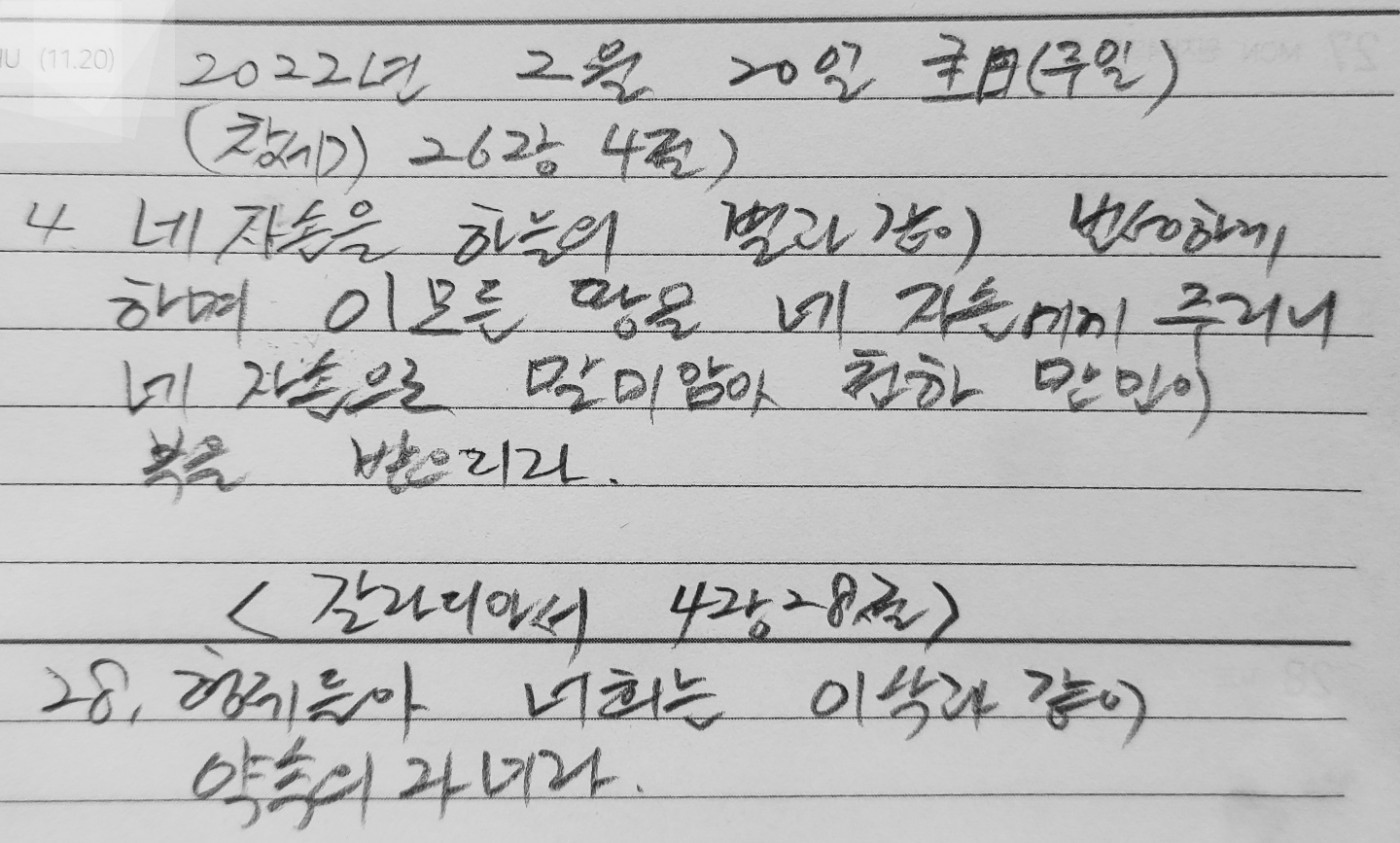 IU (11.20)
2022년 2월 20일 主日(주일)
(창세기) 26장 4절)
4 네 자손을 하늘의 별과 같이 번성하게
하며 이 모든 땅을 네 자손에게 주리니
네 자손으로 말미암아 천하 만민이
복을 받으리라.
<갈라디아서 4장 28절>
28, 형제들아 너희는 이삭과 같이
약속의 자녀라.